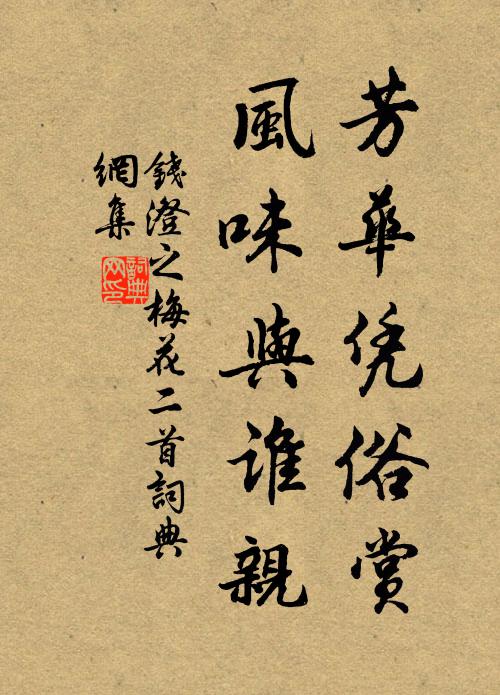 芳華凭俗賞
風味與誰親
錢澄之梅花二首詞典
網集
詞典
网印